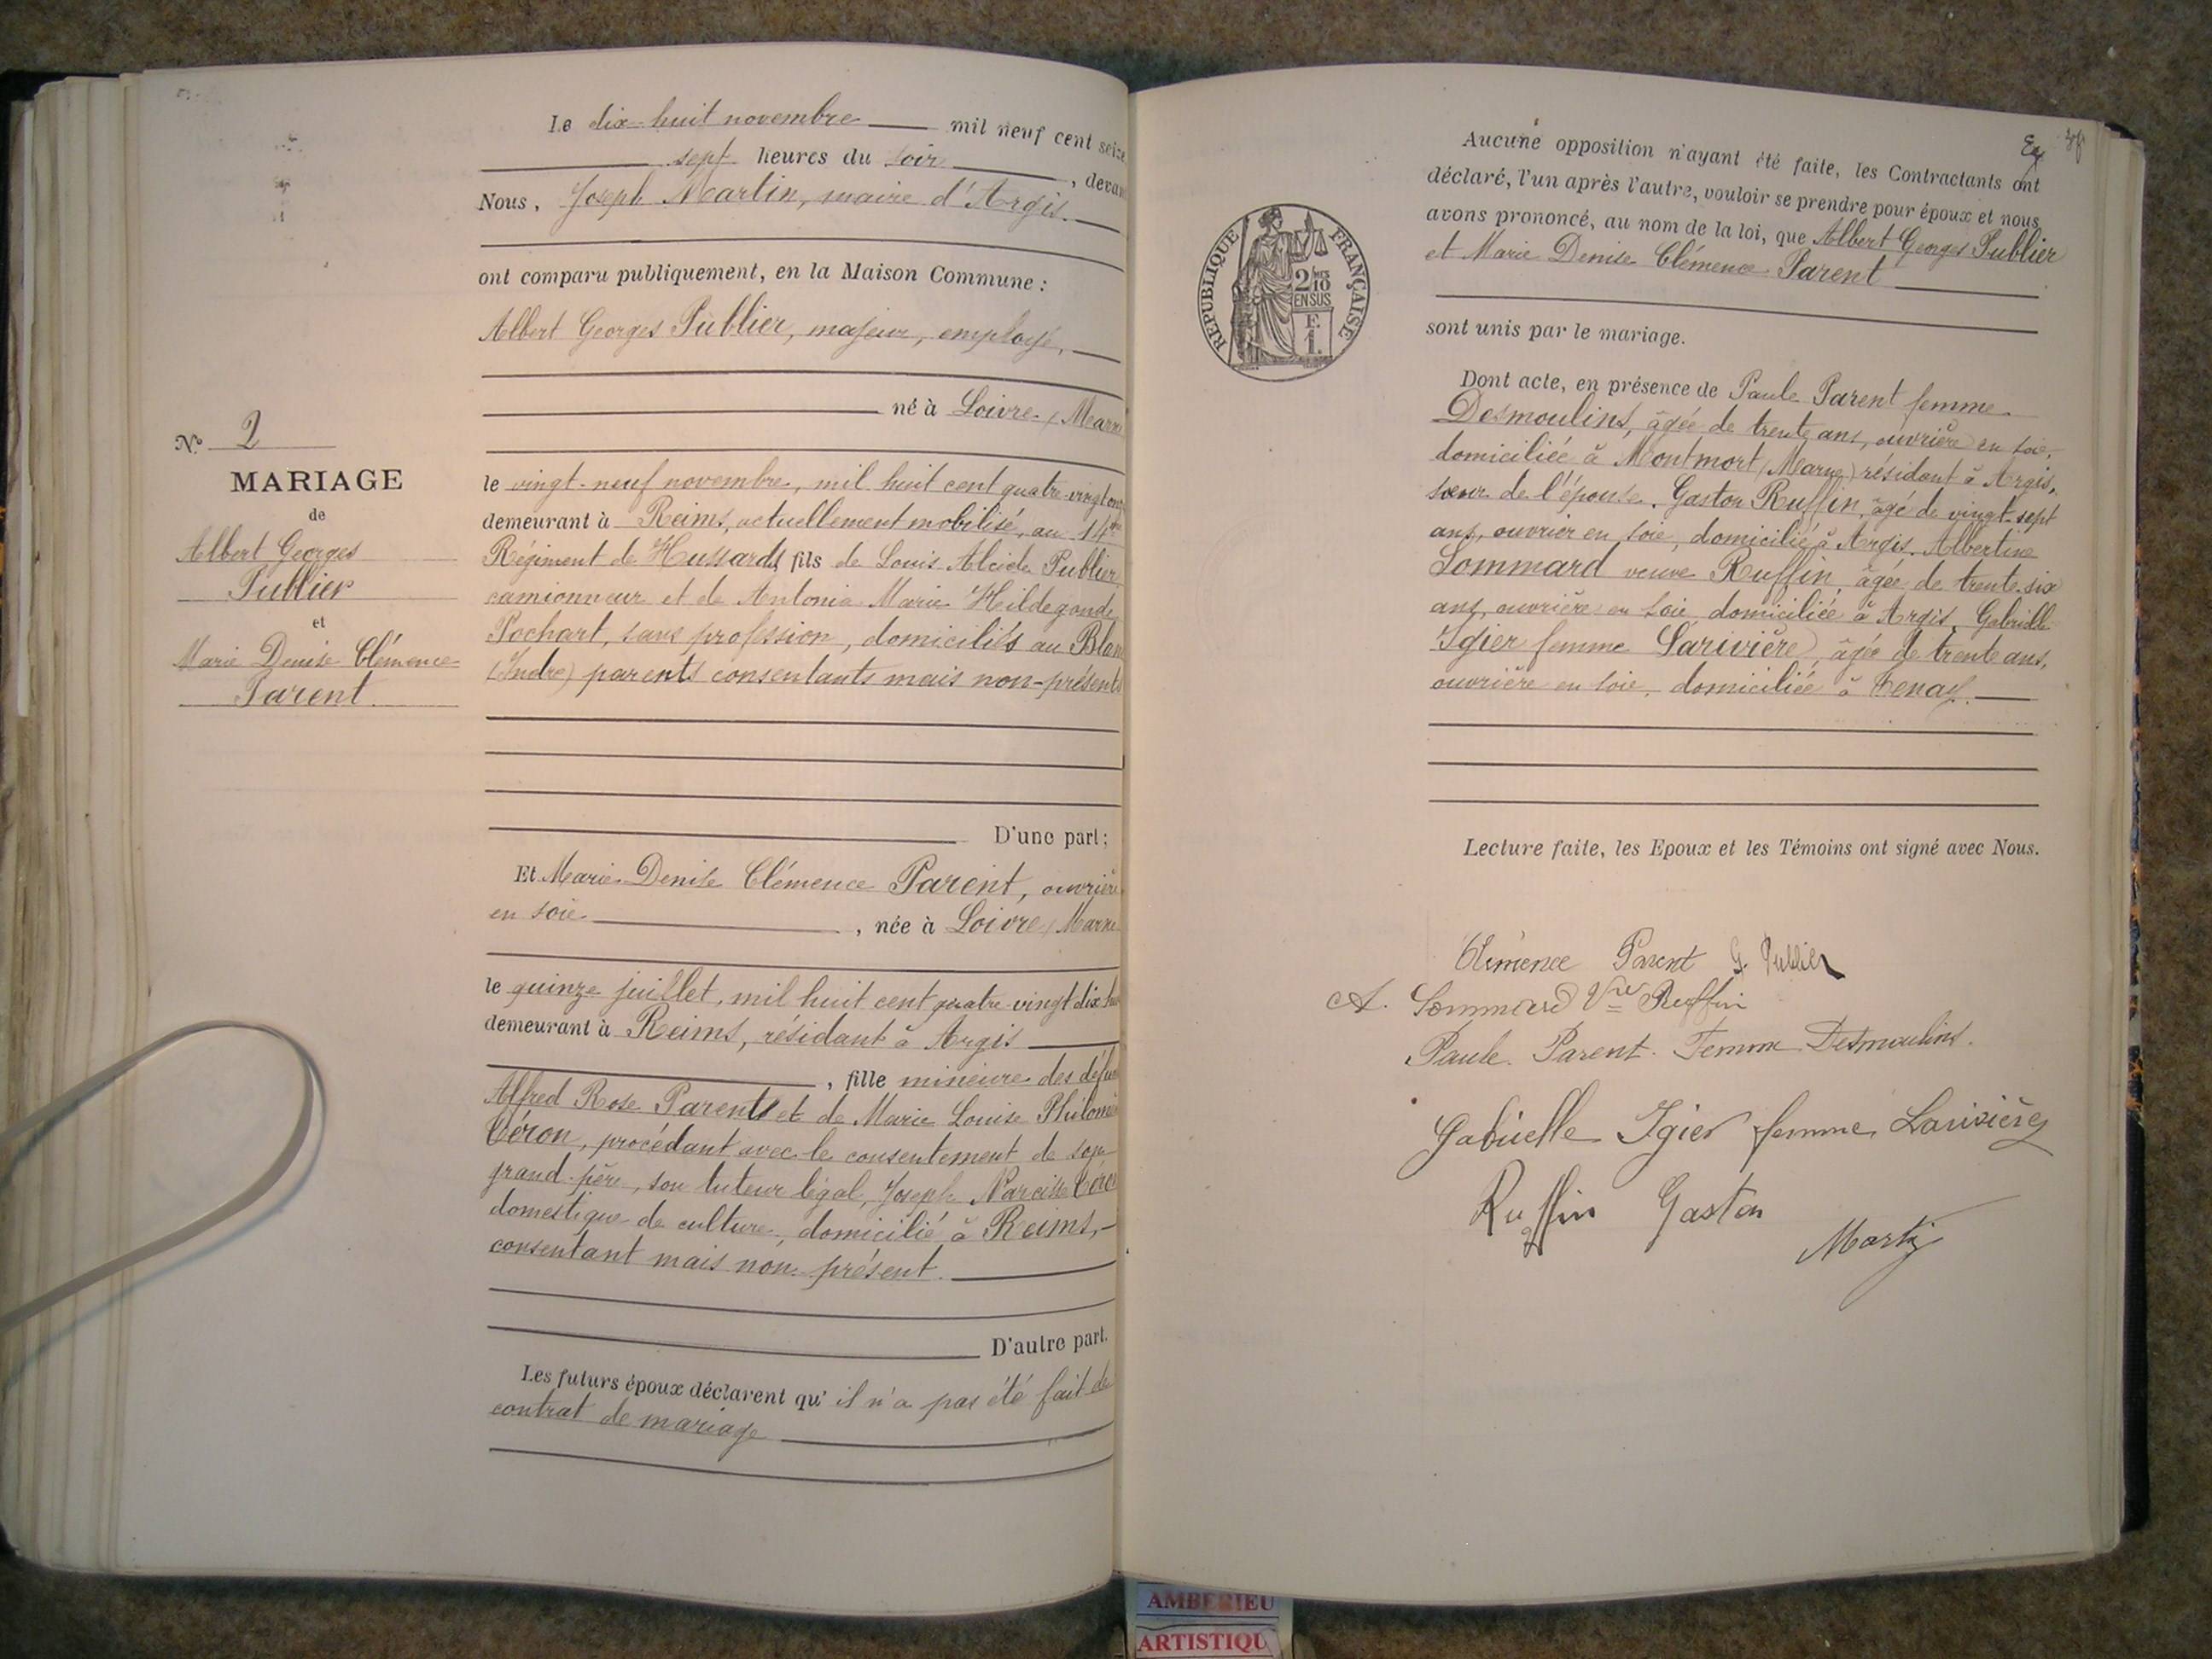 Le dix-huit novembre mil neuf cent seize
sept heures du soir, devan
Nous, Joseph Martin, maire d'Argis.
ont comparu publiquement, en la Maison Commune :
Albert Georges Publier, majeur, employé,
né à Loivre (Marne
le vingt-neuf novembre, mil huit cent quatre-vingt onz
demeurant à Reims, actuellement mobilisé, au 14me
Régiment de Hussards, fils de Louis Alcide Publier
camionneur et de Antonia Marie Hildegonde
Pochart, sans profession, domiciliés au Blan
(Indre) parents consentants mais non-présents
D'une part ;
Et Marie Denise Clémence Parent, ouvrière
en soie, née à Loivre (Marne
le quinze juillet, mil huit cent quatre-vingt dix
demeurant à Reims, résidant à Argis
, fille mineure des défun
Alfred Rose Parent et de Marie Louise Philomè
Céron, procédant avec le consentement de son
grand-père, son tuteur légal, Joseph Narcisse Céro
domestique de culture, domicilié à Reims,
consentant mais non présent.
D'autre part.
Les futurs époux déclarent qu'il n'a pas été fait de
contrat de mariage
N° 2
MARIAGE
de
Albert Georges
Publier
et
Marie Denise Clémence
Parent
Aucune opposition n'ayant été faite, les Contractants ont
déclaré, l'un après l'autre, vouloir se prendre pour époux et nous
avons prononcé, au nom de la loi, que Albert Georges Publier
et Marie Denise Clémence Parent
sont unis par le mariage.
RÉPUBLIQUE FRANÇAISE
2/10
EN SUS
F.
1.
Dont acte, en présence de Paule Parent femme
Desmoulins, âgée de trente ans, ouvrière en soie,
domiciliée à Montmort (Marne) résidant à Argis,
sœur de l'épouse. Gaston Ruffin, âgé de vingt-sept
ans, ouvrier en soie, domicilié à Argis. Albertine
Sommard veuve Ruffin, âgée de trente-six
ans, ouvrière en soie, domiciliée à Argis. Gabrielle
Igier femme Larivière, âgée de trente ans,
ouvrière en soie, domiciliée à Tenay.
Lecture faite, les Epoux et les Témoins ont signé avec Nous.
Clémence Parent G. Publier
A. Sommard Vve Ruffin
Paule Parent Femme Desmoulins.
Gabrielle Igier femme Larivière
Ruffin Gaston
Martin
AMBERIEU
ARTISTIQU